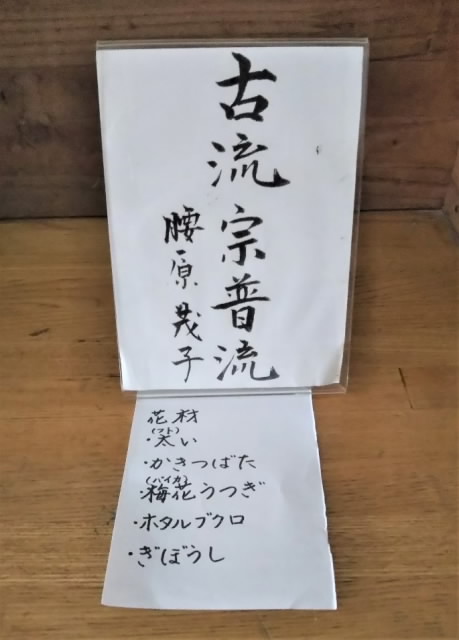 古流 宗普流
腰原 茂子
花材
(フト)
・太い
・かきつばた
(バイカ)
・梅花うつぎ
・ホタルブクロ
・ぎぼうし